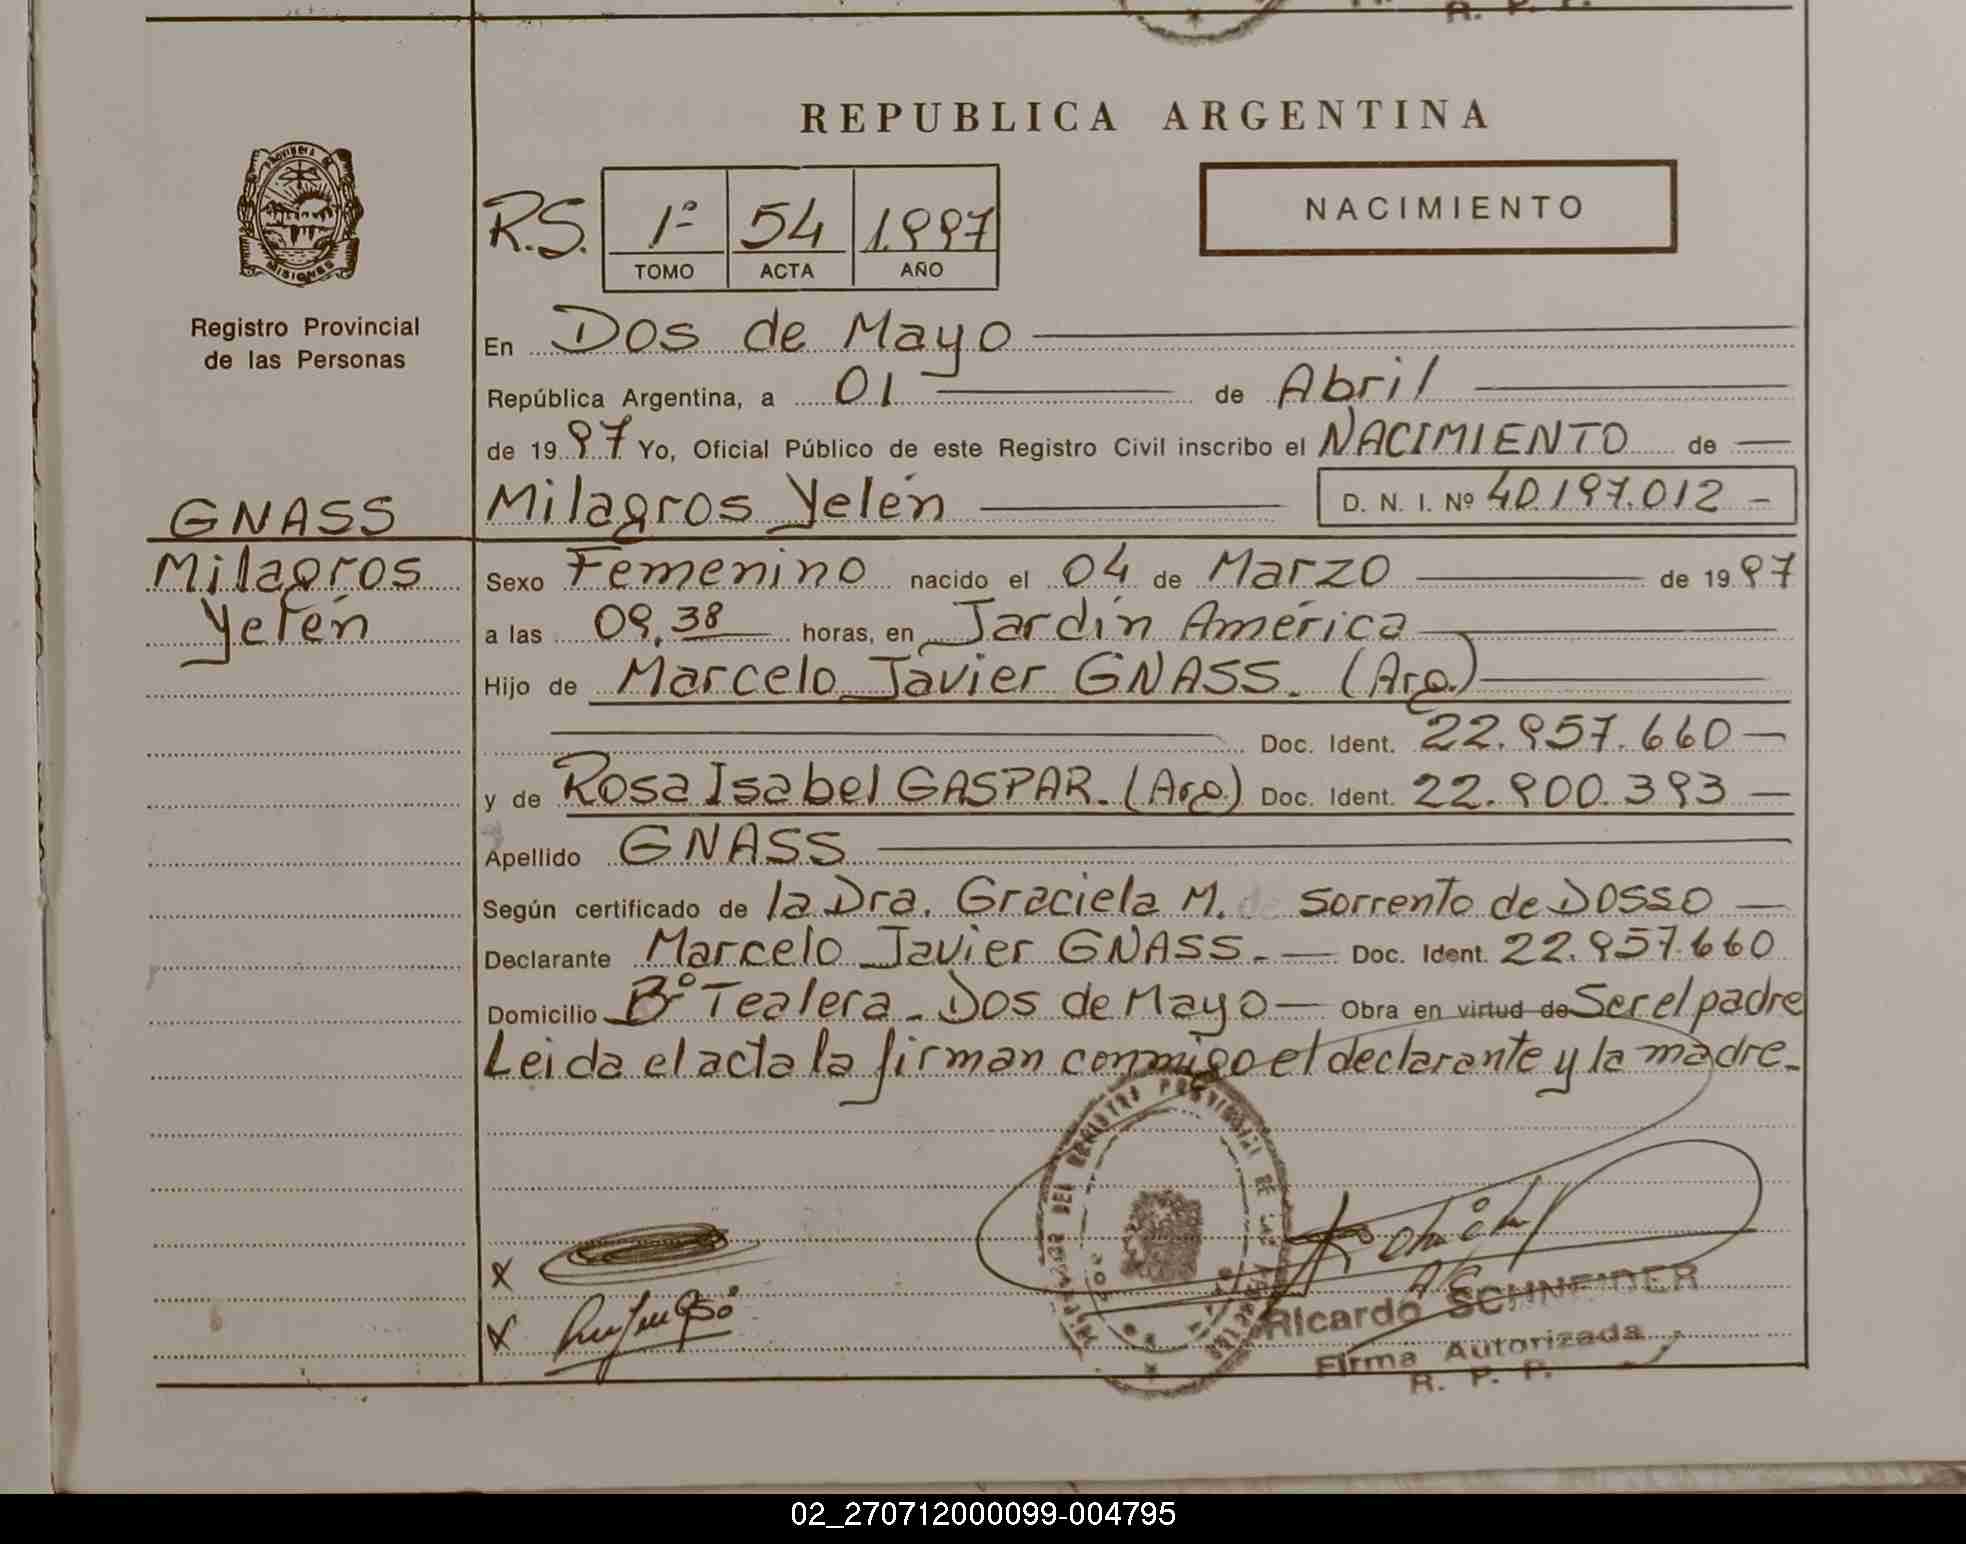 R. P. P.
REPUBLICA ARGENTINA
PROVINCIA DE
MISIONES
NACIMIENTO
R.S. 1º 54 1.997
TOMO ACTA AÑO
Registro Provincial
de las Personas
En Dos de Mayo
República Argentina, a 01 de Abril
de 1997 Yo, Oficial Público de este Registro Civil inscribo el NACIMIENTO de
GNASS
Milagros Yelén D. N. I. Nº 40.197.012 -
Milagros
Yelén
Sexo Femenino nacido el 04 de Marzo de 1997
a las 09,38 horas, en Jardín América
Hijo de Marcelo Javier GNASS. (Arg.)
Doc. Ident. 22.957.660 —
y de Rosa Isabel GASPAR. (Arg.) Doc. Ident. 22.900.393 —
Apellido GNASS
Según certificado de la Dra. Graciela M. de Sorrento de DOSSO —
Declarante Marcelo Javier GNASS. — Doc. Ident. 22.957.660
Domicilio Bº Tealera - Dos de Mayo — Obra en virtud de Ser el padre
Leida el acta la firman conmigo el declarante y la madre.
REGISTRO PROVINCIAL DE LAS
x
x
Ricardo SCHNEIDER
Firma Autorizada
R. P. P.
02_270712000099-004795